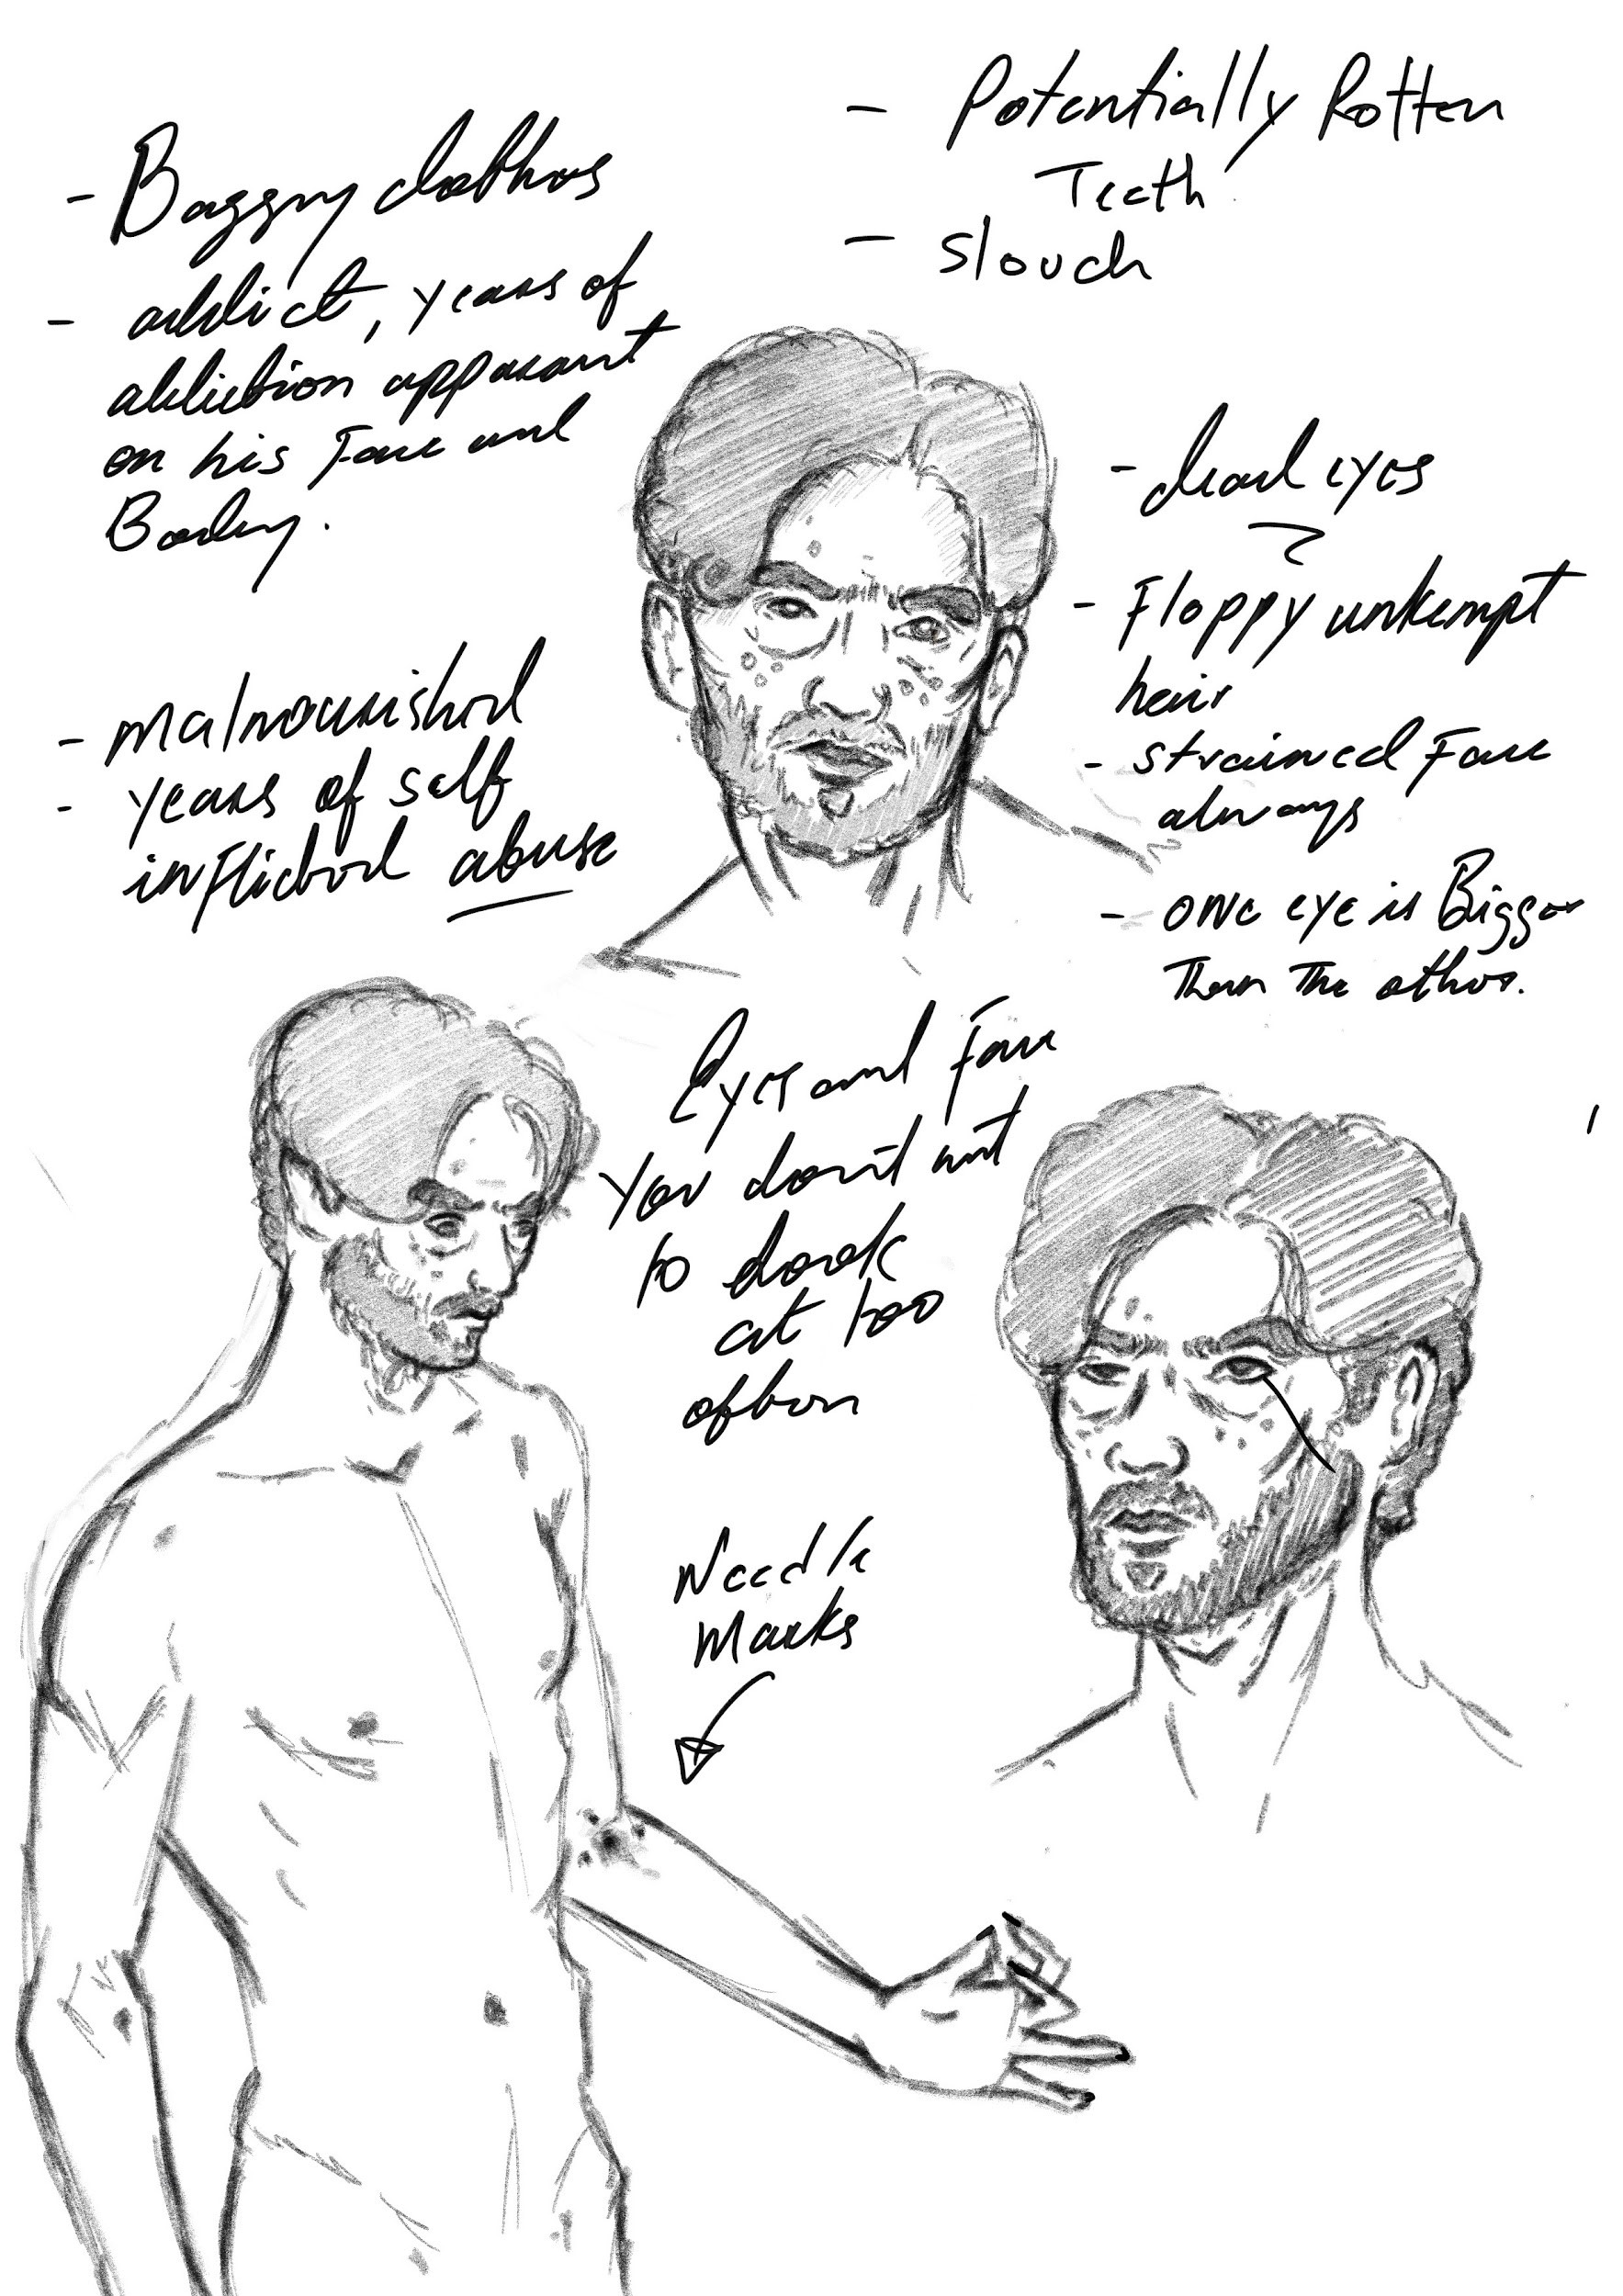 - Baggy clothes
- addict, years of
addiction apparant
on his Face and
Body.
- malnourished
- years of self
inflicted abuse
- Potentially Rotten
Teeth
- Slouch
- dead eyes
- Floppy unkempt
hair
- strained Face
always
- one eye is Bigger
Than The other.
Eyes and Face
You don't wnt
to look
at too
often
Needle
Marks